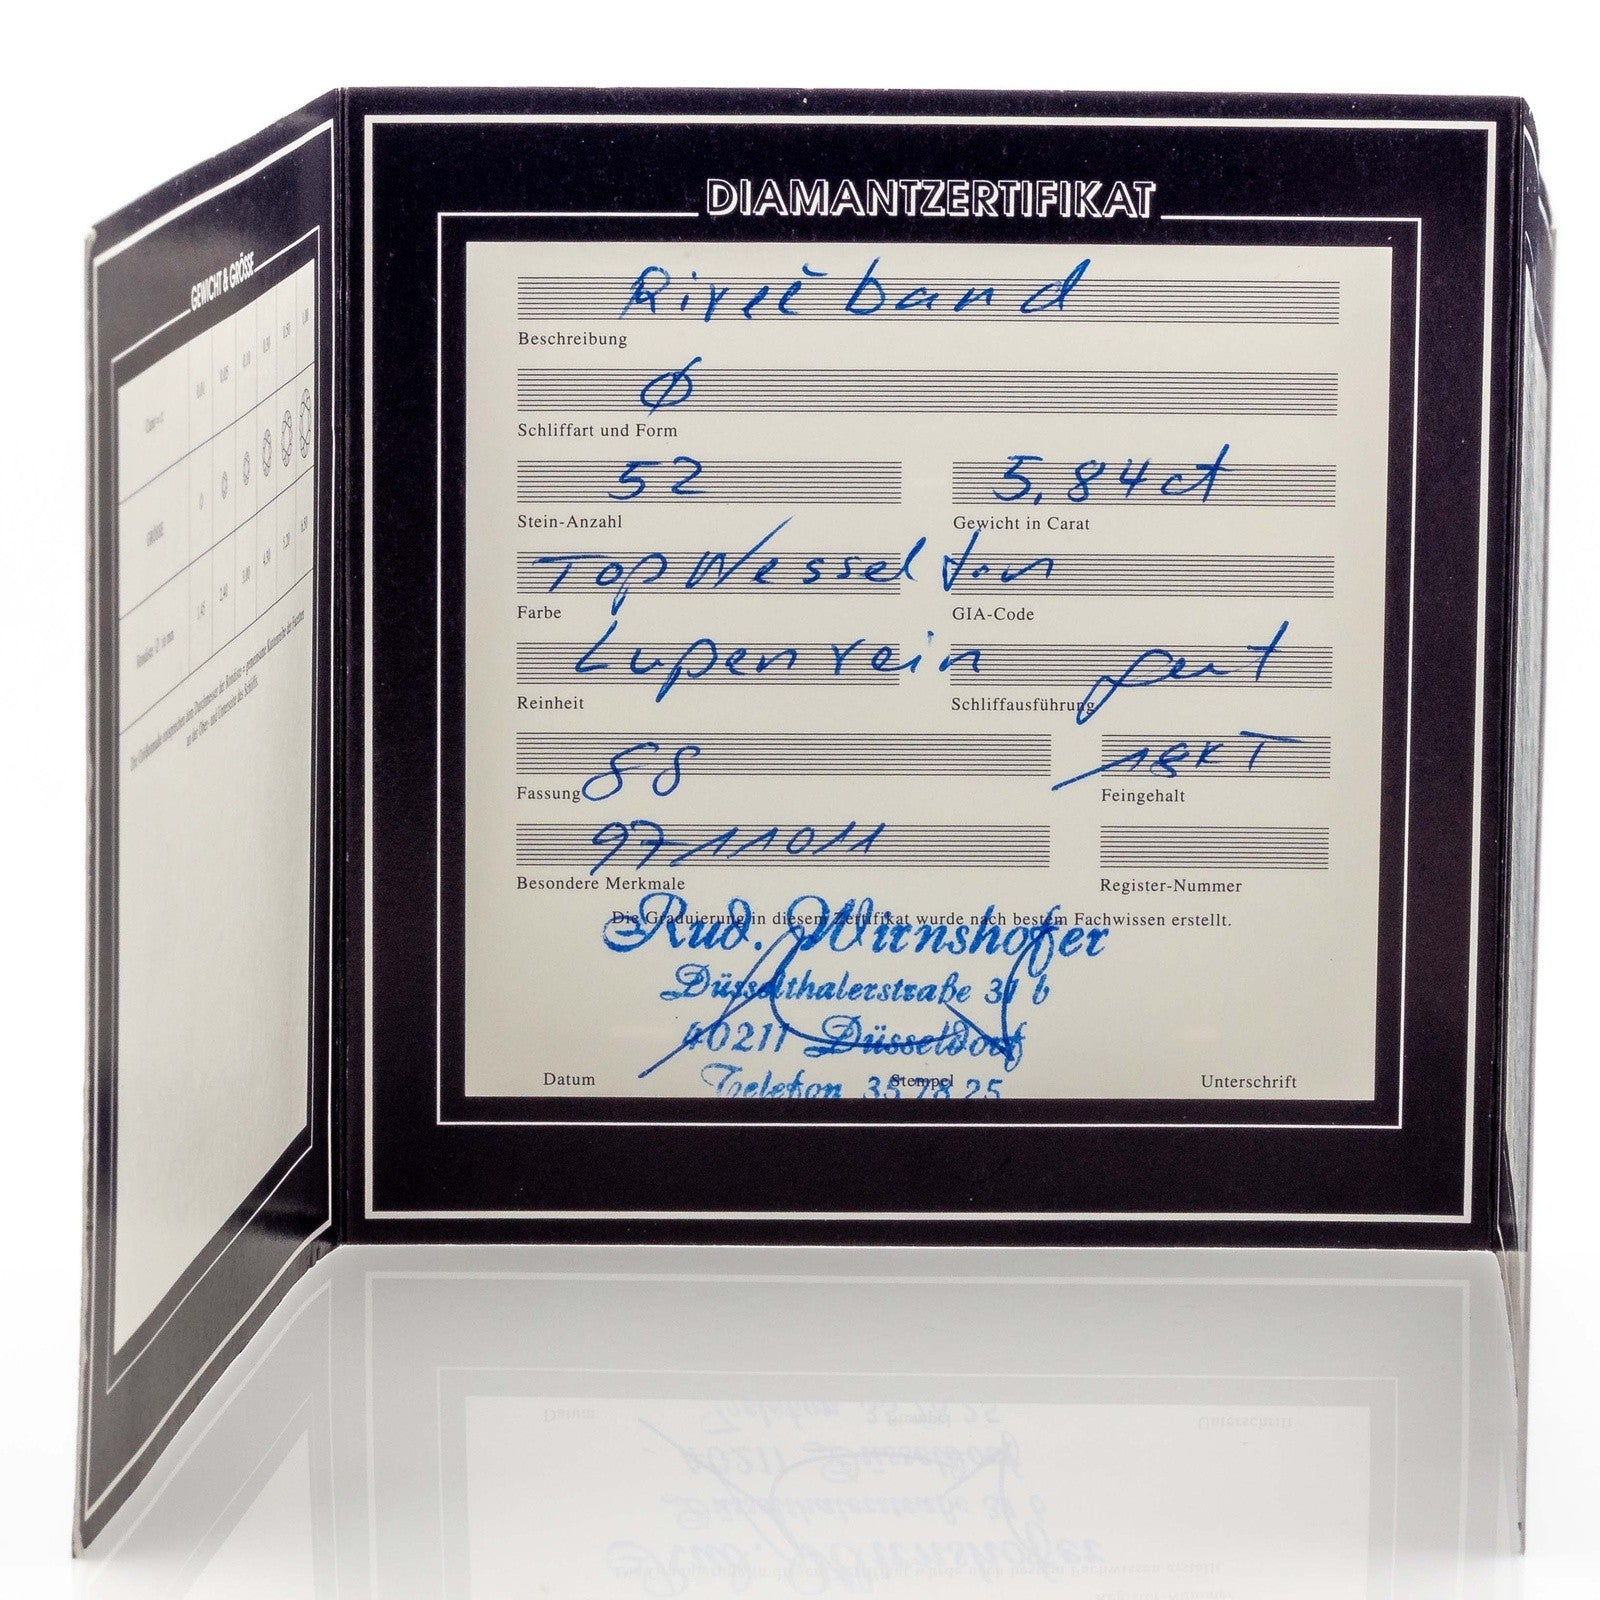 GEWICHT & GRÖSSE
GRÖSSE
0,05 0,10 0,50 1,00
2,40 3,00 5,20 6,50
DIAMANTZERTIFIKAT
Rivèeband
Beschreibung
Ø
Schliffart und Form
52 5,84 ct
Stein-Anzahl Gewicht in Carat
Top Wesselton
Farbe GIA-Code
Lupenrein gut
Reinheit Schliffausführung
88 18KT
Fassung Feingehalt
97-11011
Besondere Merkmale Register-Nummer
Die Graduierung in diesem Zertifikat wurde nach bestem Fachwissen erstellt.
Rud. Wirnshofer
Düsselthalerstraße 31 b
40211 Düsseldorf
Telefon 35 78 25
Datum Stempel Unterschrift